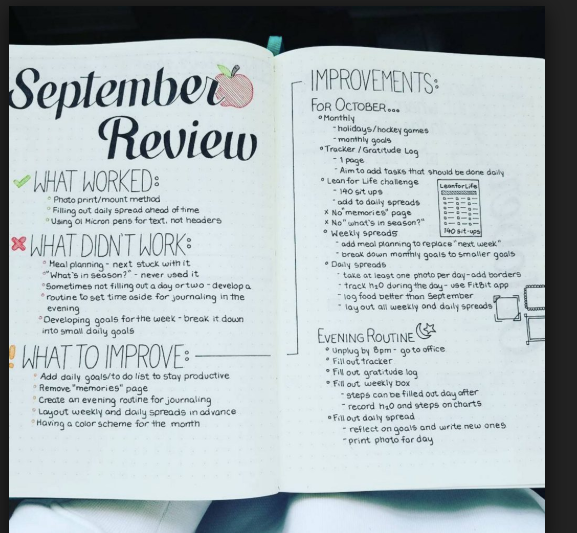 September
Review
WHAT WORKED:
Photo print/mount method
Filling out daily spread ahead of time
Using 01 Micron pens for text, not headers
WHAT DIDN'T WORK:
Meal planning - next stuck with it
"What's in season?" - never used it
Sometimes not filling out a day or two - develop a
routine to set time aside for journaling in the
evening
Developing goals for the week - break it down
into small daily goals
! WHAT TO IMPROVE:
Add daily goals/to do list to stay productive
Remove "memories" page
Create an evening routine for journaling
Layout weekly and daily spreads in advance
Having a color scheme for the month
IMPROVEMENTS:
FOR OCTOBER...
Monthly
- holidays/hockey games
- monthly goals
Tracker / Gratitude Log
- 1 page
- Aim to add tasks that should be done daily
Lean for Life challenge
- 140 sit ups
- add to daily spreads
x No "memories" page
x No "what's in season?"
Weekly spreads
- add meal planning to replace "next week"
- break down monthly goals to smaller goals
Daily spreads
- take at least one photo per day - add borders
- track h2o during the day - use FitBit app
- log food better than September
- lay out all weekly and daily spreads
Lean for Life
140 sit-ups
EVENING ROUTINE
Unplug by 8pm - go to office
Fill out tracker
Fill out gratitude log
Fill out weekly box
- steps can be filled out day after
- record h2o and steps on charts
Fill out daily spread
- reflect on goals and write new ones
- print photo for day